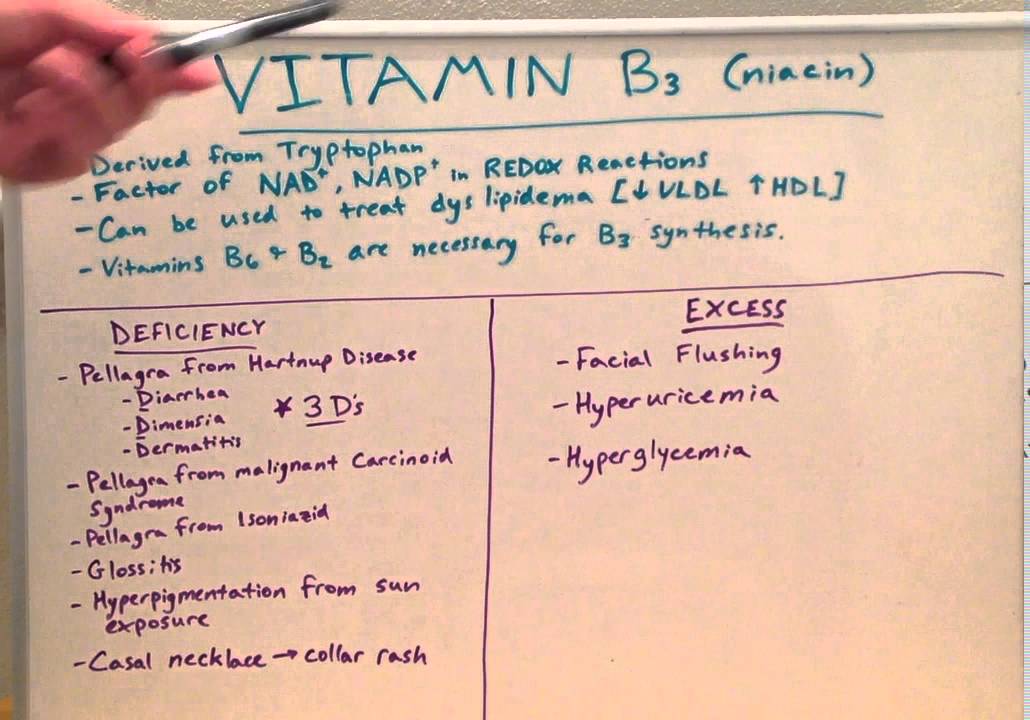 VITAMIN B3 (niacin)
Derived from Tryptophan
- Factor of NAD+, NADP+ in REDOX Reactions
- Can be used to treat dyslipidema [↓ VLDL ↑ HDL]
- Vitamins B6 & B2 are necessary for B3 synthesis.
DEFICIENCY
- Pellagra from Hartnup Disease
- Diarrhea
- Dimensia * 3 D's
- Dermatitis
- Pellagra from malignant Carcinoid
Syndrome
- Pellagra from Isoniazid
- Glossitis
- Hyperpigmentation from sun
exposure
- Casal necklace → collar rash
EXCESS
- Facial Flushing
- Hyperuricemia
- Hyperglycemia